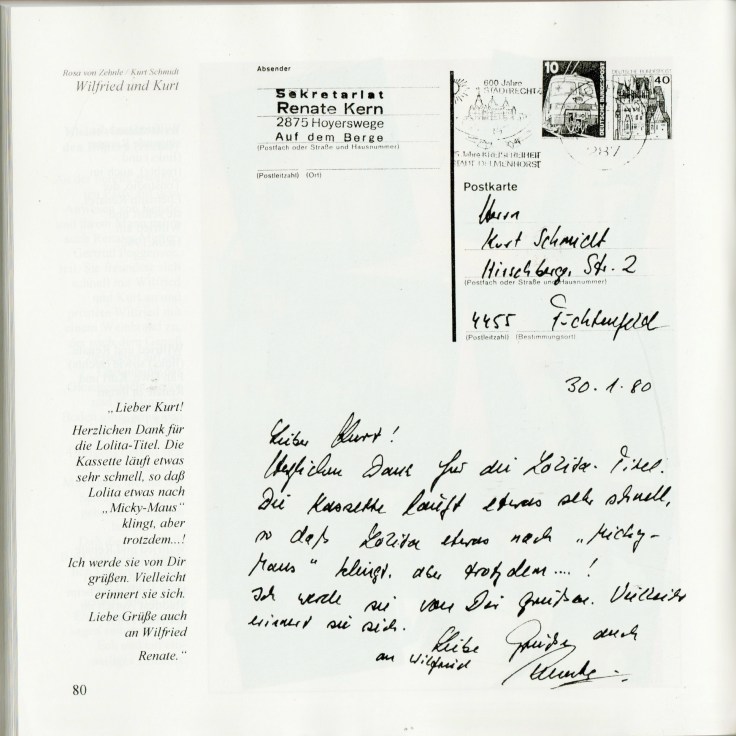 Rosa von Zehnle / Kurt Schmidt
Wilfried und Kurt
Absender
Sekretariat
Renate Kern
2875 Hoyerswege
Auf dem Berge
(Postfach oder Straße und Hausnummer)
(Postleitzahl) (Ort)
600 Jahre
STADTRECHT
JAHRE KREISFREIHEIT
STADT DELMENHORST
10
DEUTSCHE BUNDESPOST
DEUTSCHE BUNDESPOST
40
Postkarte
Herrn
Kurt Schmidt
Hirschberg. Str. 2
(Postfach oder Straße und Hausnummer)
4455 Füchtenfeld
(Postleitzahl) (Bestimmungsort)
30.1.80
Lieber Kurt!
Herzlichen Dank für die Lolita-Titel.
Die Kassette läuft etwas sehr schnell,
so daß Lolita etwas nach „Micky-
Maus“ klingt, aber trotzdem....!
Ich werde sie von Dir grüßen. Vielleicht
erinnert sie sich.
Liebe Grüße auch
an Wilfried
Renate.
„Lieber Kurt!
Herzlichen Dank für
die Lolita-Titel. Die
Kassette läuft etwas
sehr schnell, so daß
Lolita etwas nach
„Micky-Maus“
klingt, aber
trotzdem...!
Ich werde sie von Dir
grüßen. Vielleicht
erinnert sie sich.
Liebe Grüße auch
an Wilfried
Renate.“
80